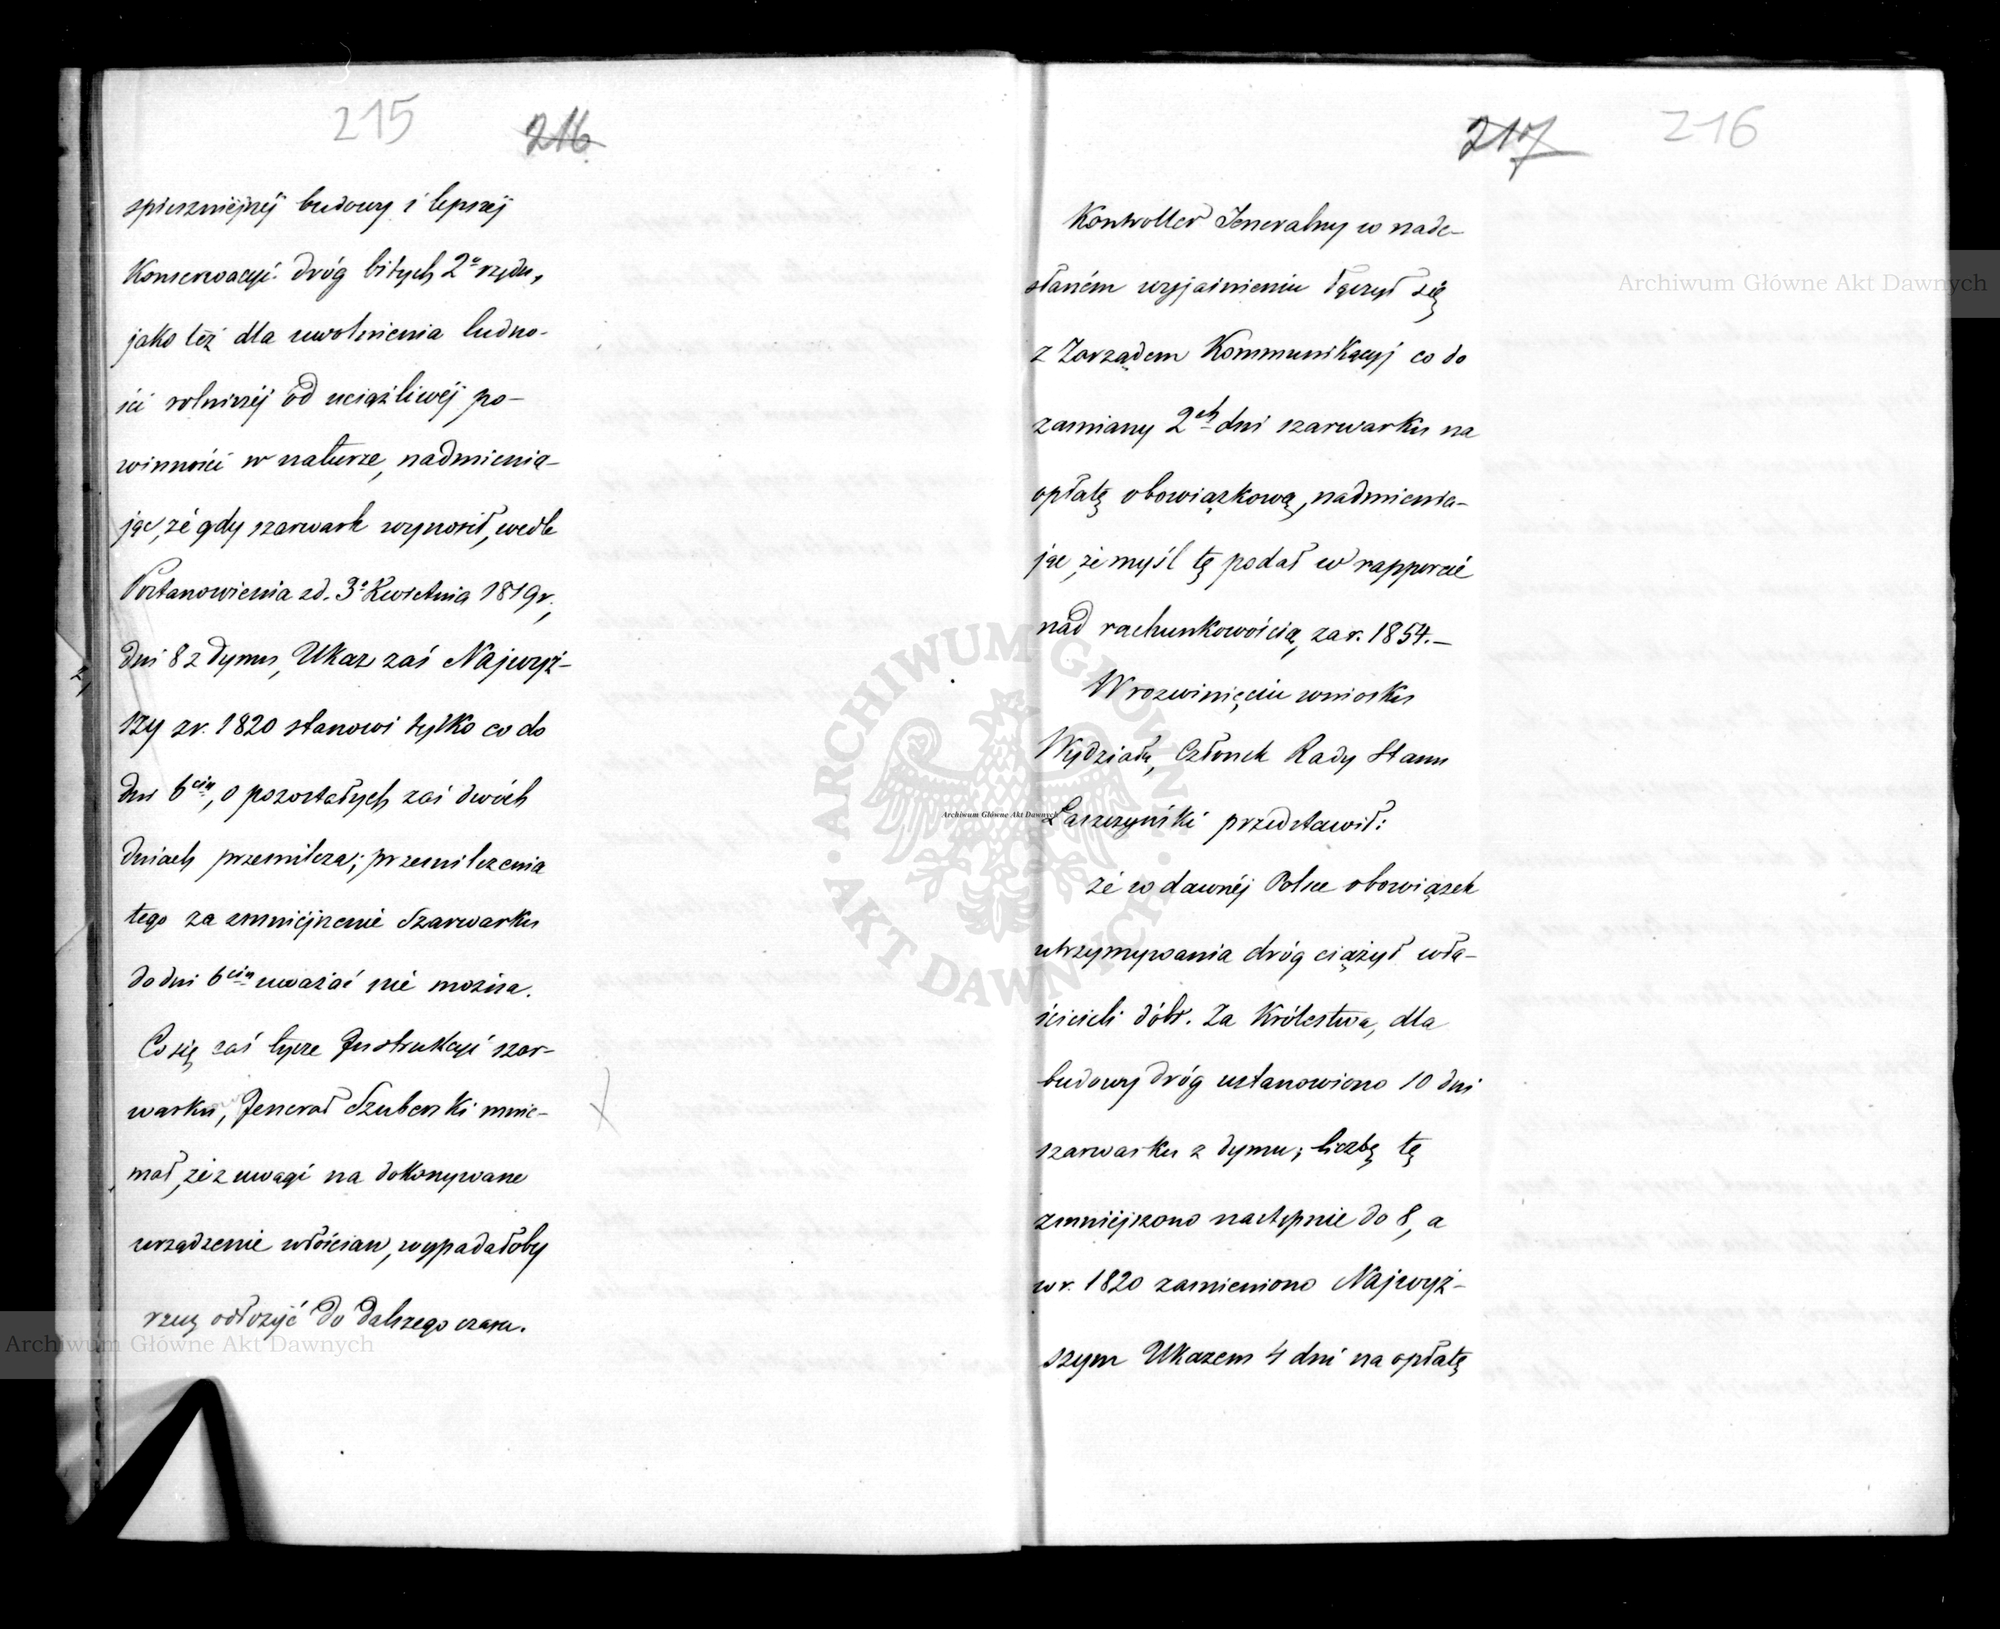 215 216
spieszniejszéj budowy i lepszéj
Konserwacyi dróg bitych 2º rzędu,
jako też dla uwolnienia ludno-
ści rolniczéj od uciążliwéj po-
winności w naturze, nadmienia-
jąc, że gdy szarwark wynosił, wedle
Postanowienia z d. 3º Kwietnia 1819 r.,
dni 8 z dymu, Ukaz zaś Najwyż-
szy z r. 1820 stanowi tylko co do
dni 6ciu, o pozostałych zaś dwóch
dniach przemilcza; przemilczenia
tego za zmniejszenie Szarwarku
do dni 6ciu uważać nie można.
Co się zaś tycze Instrukcyi szar-
warku, Jenerał Szuberski mnie-
mał, że z uwagi na dokonywane
urządzenie włościan, wypadałoby
rzecz odłożyć do dalszego czasu.
217 216
Kontroller Jeneralny w nade-
słaném wyjaśnieniu łączył się
z Zarządem Kommunikacyj co do
zamiany 2ch dni szarwarku na
opłatę obowiązkową, nadmienia-
jąc, że myśl tę podał w rapporcie
nad rachunkowością za r. 1854.—
W rozwinięciu wniosku
Wydziału, Członek Rady Stanu
Łaszczyński przedstawił:
że w dawnéj Polsce obowiązek
utrzymywania dróg ciążył wła-
ścicieli dóbr. Za Królestwa, dla
budowy dróg ustanowiono 10 dni
szarwarku z dymu; liczbę tę
zmniejszono następnie do 8, a
w r. 1820 zamieniono Najwyż-
szym Ukazem 4 dni na opłatę
Archiwum Główne Akt Dawnych
Archiwum Główne Akt Dawnych
Archiwum Główne Akt Dawnych
ARCHIWUM GŁÓWNE AKT DAWNYCH